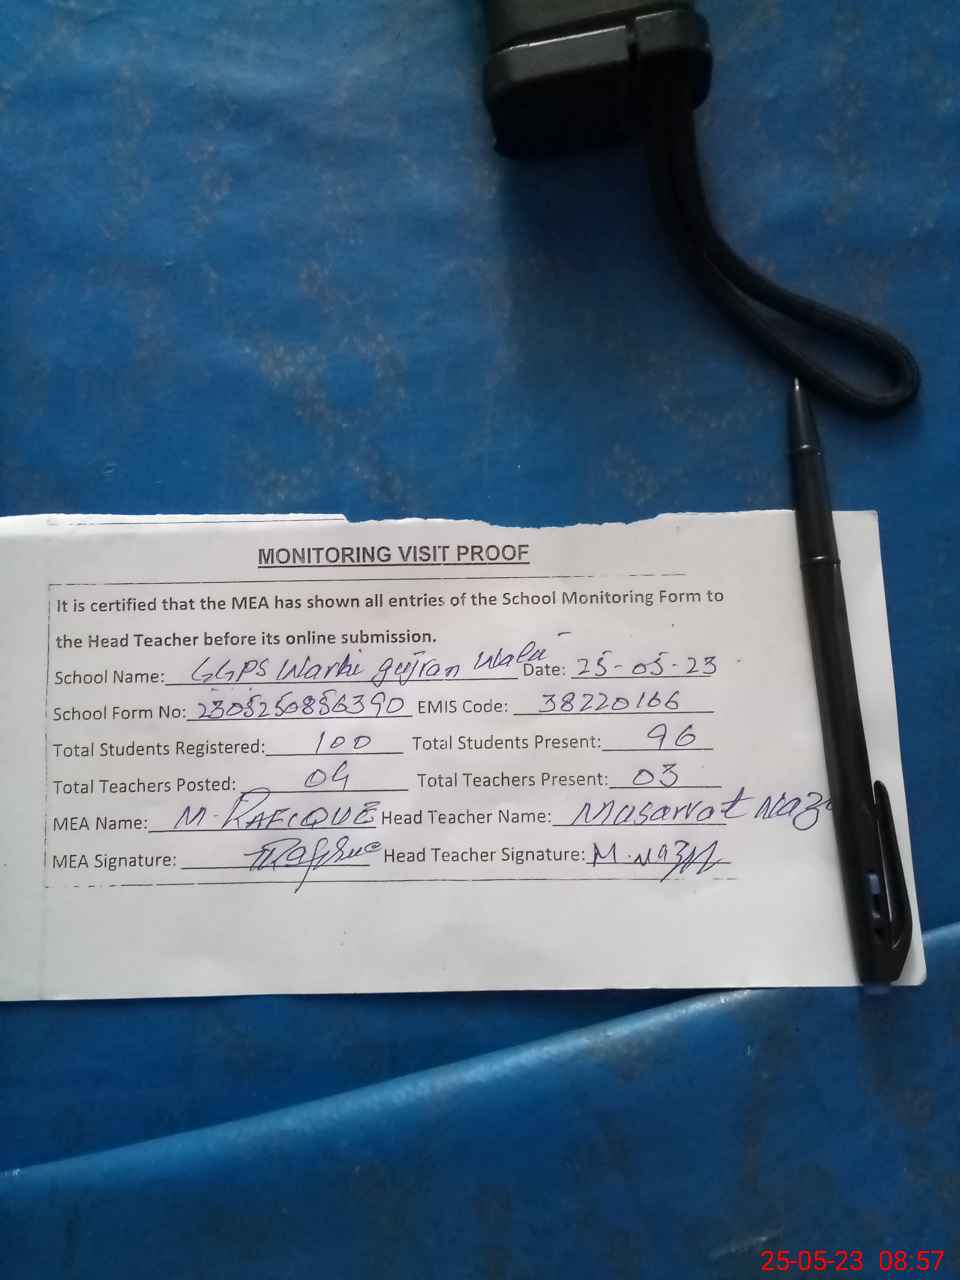 MONITORING VISIT PROOF
It is certified that the MEA has shown all entries of the School Monitoring Form to
the Head Teacher before its online submission.
School Name: GGPS Warhi gujran Wala Date: 25-05-23
School Form No: 2305250856390 EMIS Code: 38220166
Total Students Registered: 100 Total Students Present: 96
Total Teachers Posted: 04 Total Teachers Present: 03
MEA Name: M. RAFIQUE Head Teacher Name: Musarrat
MEA Signature: Head Teacher Signature:
25-05-23 08:57